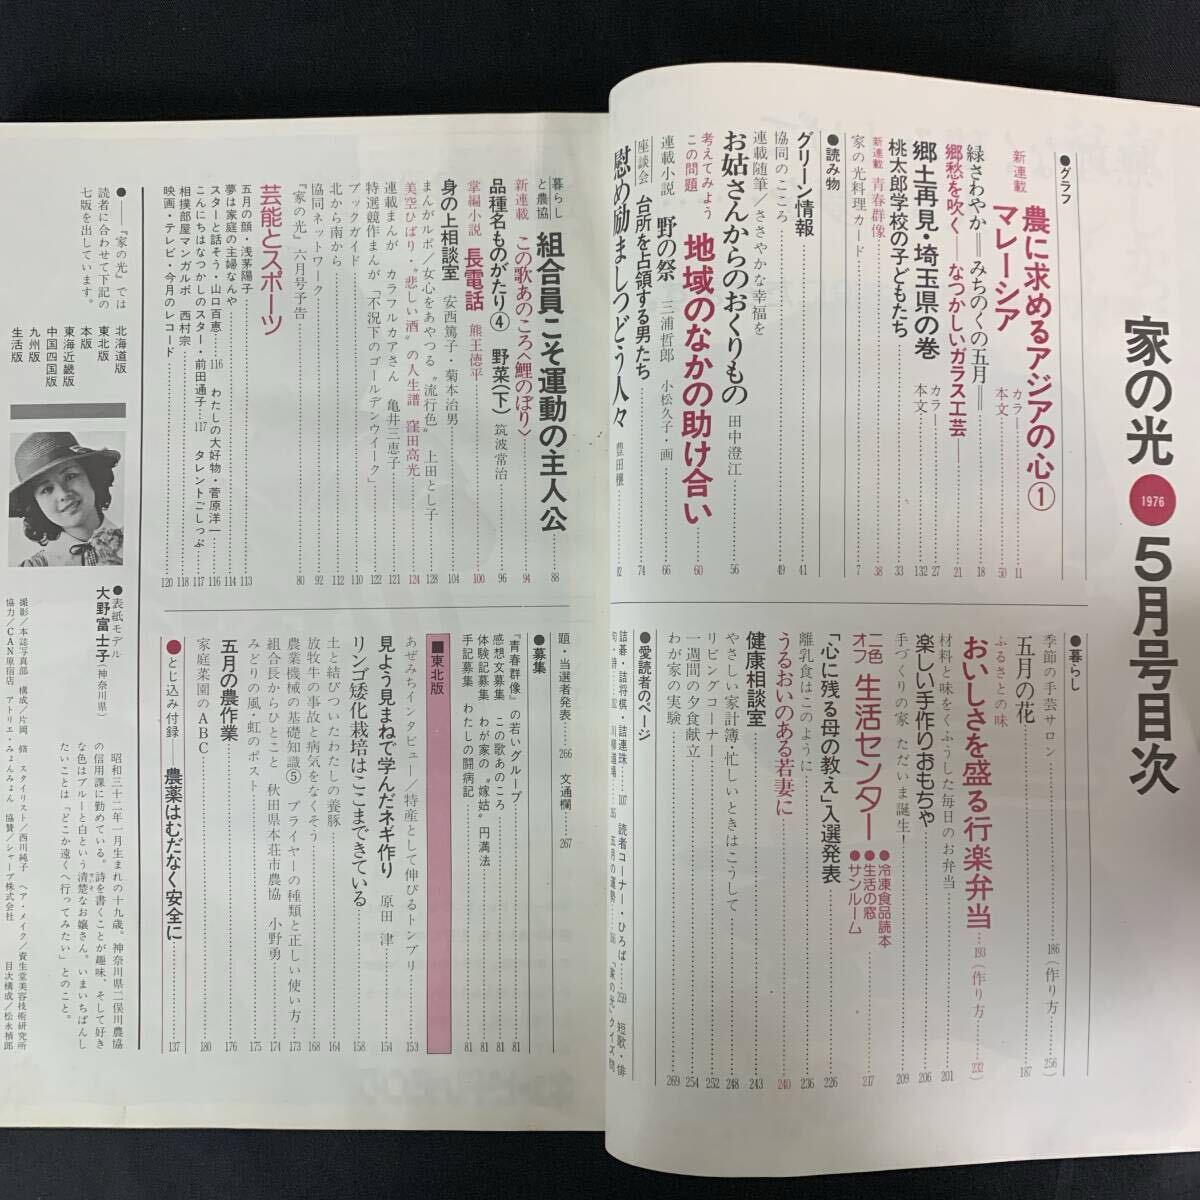 家の光 1976 5月号目次
●グラフ
新連載 農に求めるアジアの心①
マレーシア カラー 11 本文 50
緑さわやか＝みちのくの五月＝ 18
郷愁を吹く――なつかしいガラス工芸 21
郷土再見・埼玉県の巻 カラー 27 本文 132
桃太郎学校の子どもたち 33
新連載 青春群像 38
家の光料理カード 7
●読み物
グリーン情報 41
協同のこころ 49
連載随筆／ささやかな幸福を
お姑さんからのおくりもの 田中澄江 56
考えてみようこの問題 地域のなかの助け合い 60
連載小説 野の祭 三浦哲郎 小松久子・画 66
座談会 台所を占領する男たち 74
慰め励ましつどう人々 豊田穣 82
●暮らし
季節の手芸サロン 186（作り方 256）
五月の花 187
ふるさとの味
おいしさを盛る行楽弁当 193（作り方 232）
材料と味をくふうした毎日のお弁当 201
楽しい手作りおもちゃ 206
手づくりの家 ただいま誕生！ 209
二色オフ 生活センター 217
●冷凍食品読本
●生活の窓
●サンルーム
「心に残る母の教え」入選発表 226
離乳食はこのように 236
うるおいのある若妻に 240
健康相談室 243
やさしい家計簿・忙しいときはこうして 248
リビングコーナー 252
一週間の夕食献立 254
わが家の実験 269
●愛読者のページ
詰碁・詰将棋・詰連珠 107 読者コーナー・ひろば 259 短歌・俳
題・当選者発表 266 文通欄 267
暮らしと農協 組合員こそ運動の主人公 88
新連載 この歌あのころ〈鯉のぼり〉 94
品種名ものがたり④ 野菜（下） 筑波常治 96
掌編小説 長電話 熊王徳平 100
身の上相談室 安西篤子・菊本治男 104
まんがルポ／女心をあやつる“流行色” 上田とし子 128
美空ひばり・“悲しい酒”の人生譜 窪田高光 124
連載まんが カラフルカアさん 亀井三恵子 121
特選競作まんが「不況下のゴールデンウイーク」 122
ブックガイド 110
北から南から 112
協同ネットワーク 92
「家の光」六月号予告 80
芸能とスポーツ
五月の顔・浅茅陽子 113
夢は家庭の主婦なんや 114
スターと話そう・山口百恵 116 わたしの大好物・菅原洋一 116
こんにちはなつかしのスター・前田通子 117 タレントごしっぷ 117
相撲部屋マンガルポ 西村宗 118
映画・テレビ・今月のレコード 120
●募集
「青春群像」の若いグループ 81
感想文募集 この歌あのころ 81
体験記募集 わが家の“嫁姑”円満法 81
手記募集 わたしの闘病記 81
■東北版
あぜみちインタビュー／特産として伸びるトンブリ 153
見よう見まねで学んだネギ作り 原田津 154
リンゴ矮化栽培はここまできている 158
土と結びついたわたしの養豚 164
放牧牛の事故と病気をなくそう 168
農業機械の基礎知識⑤ プライヤーの種類と正しい使い方 173
組合長からひとこと 秋田県本荘市農協 小野勇 174
みどりの風・虹のポスト 175
五月の農作業 176
家庭菜園のABC 180
●とじ込み付録 農薬はむだなく安全に 137
●――『家の光』では読者に合わせて下記の七版を出しています。
北海道版
東北版
本版
東海近畿版
中国四国版
九州版
生活版
●表紙モデル
大野富士子（神奈川県）
昭和三十二年一月生まれの十九歳。神奈川県二俣川農協の信用課に勤めている。詩を書くことが趣味、そして好きな色はブルーと白という清楚なお嬢さん。いまいちばんしたいことは「どこか遠くへ行ってみたい」とのこと。
撮影／本誌写真部 構成／片岡脩 スタイリスト／西川純子 ヘア・メイク／資生堂美容技術研究所
協力／CAN原宿店 アトリエ・みょんみょん 協賛／シャープ株式会社 目次構成／松永楨郎